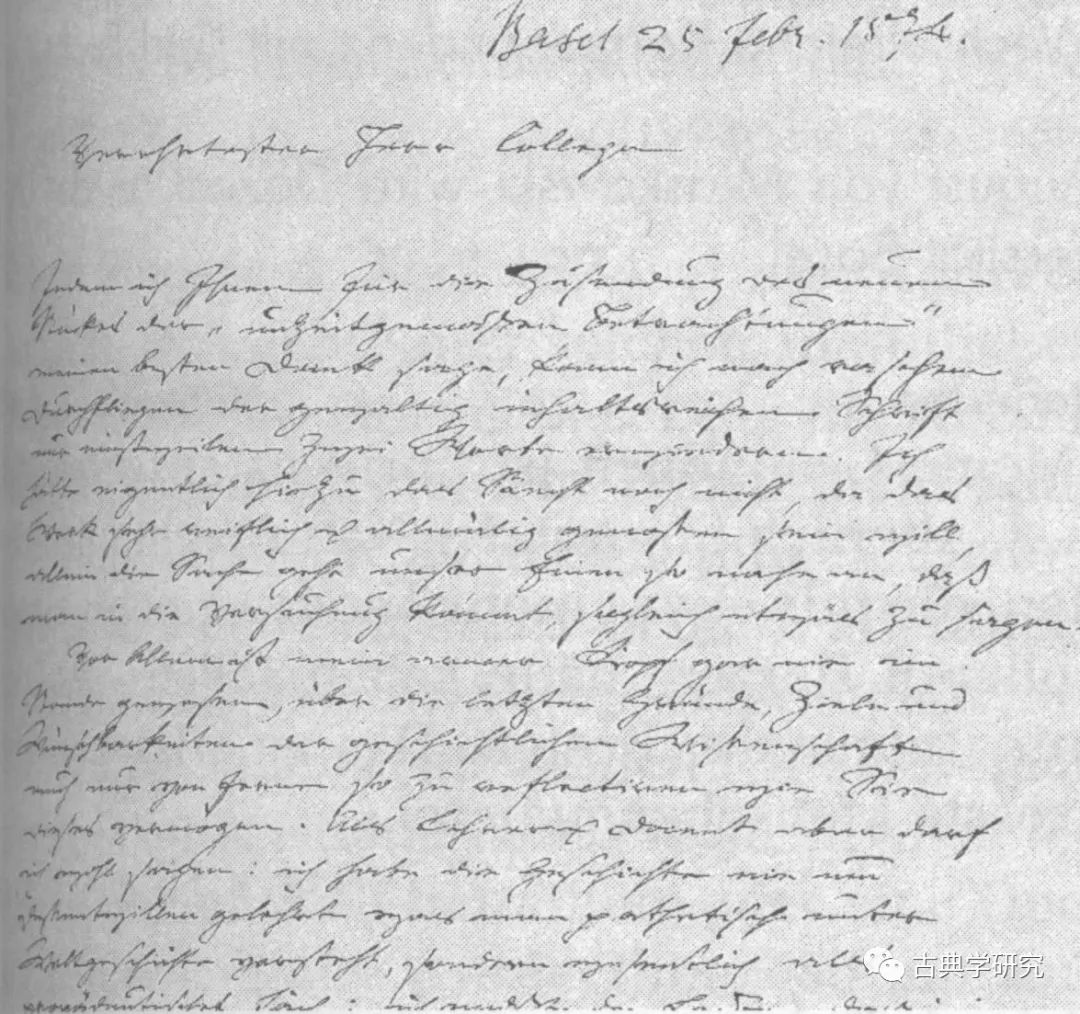 Basel 25 Febr. 1874.
Verehrtester Herr College
Indem ich Ihnen für die Zusendung des neuen
Stückes der „unzeitgemässen Betrachtungen"
meinen besten Dank sage, kann ich nach raschem
Durchfliegen der gewaltig inhaltsreichen Schrift
nur einstweilen zwei Worte erwiedern. Ich
hätte eigentlich hiezu das Recht noch nicht, da das
Werk sehr reiflich u. allmälig genossen sein will,
allein die Sache geht unser Einen so nahe an, daß
man in die Versuchung kömmt, sogleich etwas zu sagen.
Vor Allem ist mein armer Kopf gar nie im
Stande gewesen, über die letzten Gründe, Ziele und
Wünschbarkeiten der geschichtlichen Wissenschaft
auch nur von ferne so zu reflectiren wie Sie
dieses vermögen. Als Lehrer u. Docent aber darf
ich wohl sagen: ich habe die Geschichte nie um
dessentwillen gelehrt was man pathetisch unter
Weltgeschichte versteht, sondern wesentlich als
propädeutisches Fach: ich mußte den
古典学研究